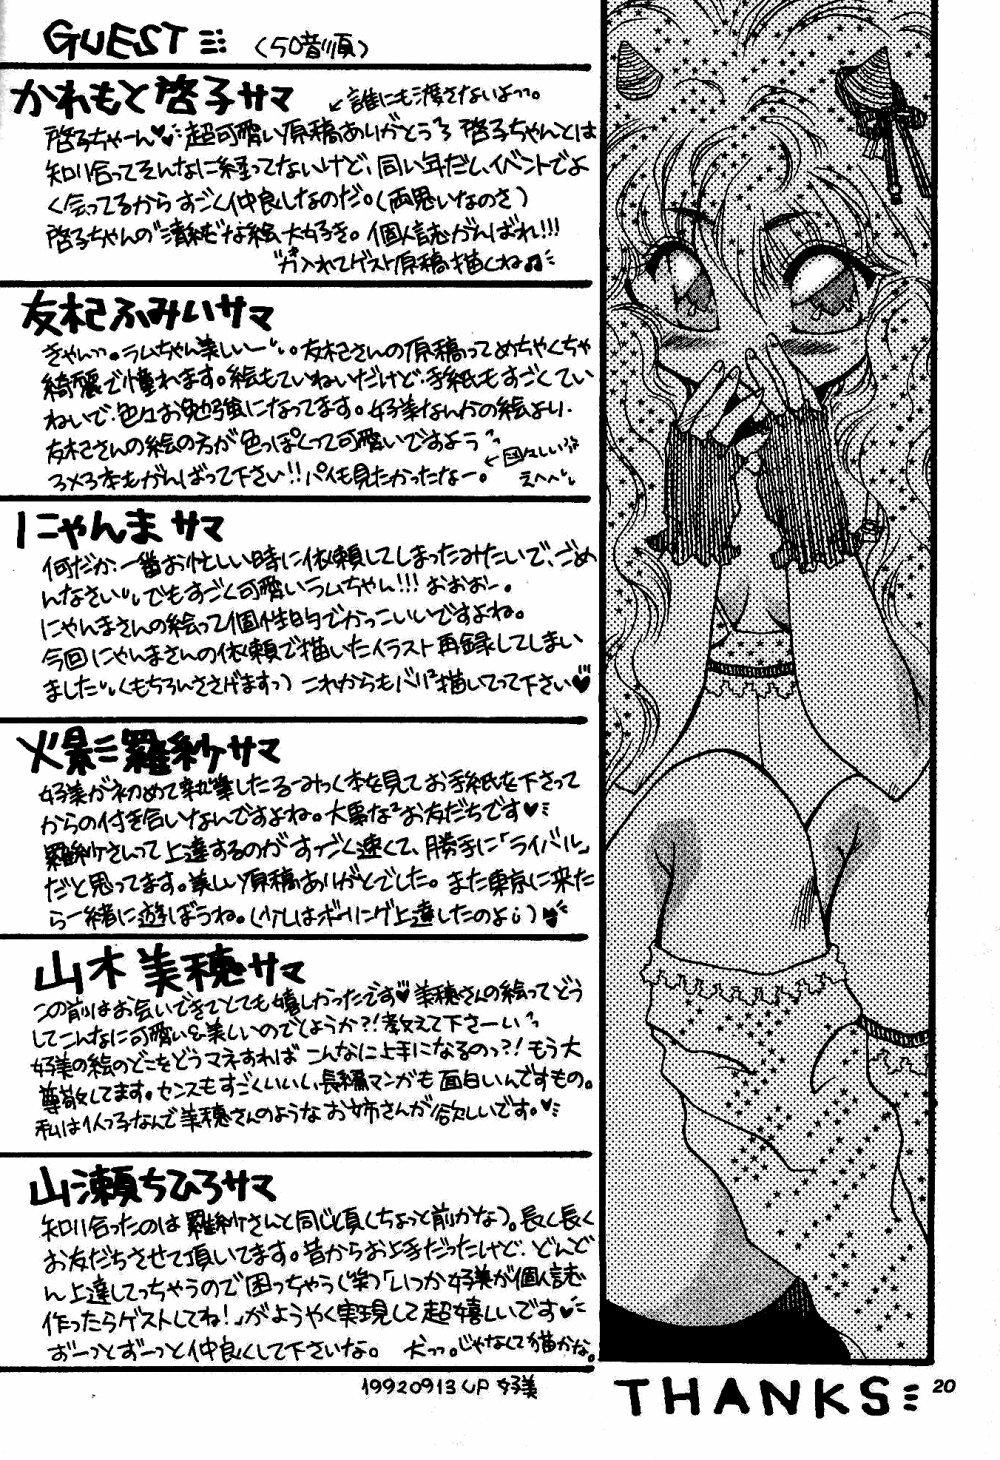 GUEST (50音順)
かわもと啓子サマ ←誰にも渡さないよっ。
啓子ちゃーん♥超可愛い原稿ありがとう 啓子ちゃんとは
知り合ってそんなに経ってないけど、同い年だし、イベントでよ
く会ってるからすごく仲良しなのだ。(両思いなのさ)
啓子ちゃんの"清純"な絵大好き。個人誌がんばれ!!!
入れてゲスト原稿描くね♫
友杞ふみいサマ
きゃんっ。ラムちゃん美しいー。友杞さんの原稿ってめちゃくちゃ
綺麗で憧れます。絵もていねいだけど、手紙もすごくてい
ねいで、色々お勉強になってます。好美なんかの絵より、
友杞さんの絵の方が色っぽくって可愛いですよう
ろメろ本もがんばって下さい!!パイも見たかったなー。←図々しい
えへへ
にゃんまサマ
何だか、一番お忙しい時に依頼してしまったみたいで、ごめ
んなさい でもすごく可愛いラムちゃん!!!おおおー。
にゃんまさんの絵って個性的でかっこいいですよね。
今回にゃんまさんの依頼で描いたイラスト再録してしまい
ました(もちろんささげますっ)これからもバリバリ描いてって下さい♥
火影羅紗サマ
好美が初めて執筆したるーみっく本を見てお手紙を下さって
からの付き合いなんですよね。大事なお友だちです♥
羅紗さんって上達するのがすっごく速くて、勝手に「ライバル」
だと思ってます。美しい原稿ありがとでした。また東京に来た
ら一緒に遊ぼうね。(少しはボーリング上達したのよ)
山木美穂サマ
この前はお会いできてとても嬉しかったです♥美穂さんの絵ってどう
してこんなに可愛い&美しいのでしょうか?!教えて下さーい
好美の絵のどこをどうマネすればこんなに上手になるのっ?!もう大
尊敬してます。センスもすごくいいし、長編マンガも面白いんですもの。
私は1人っ子なんで美穂さんのようなお姉さんが欲しいです。♥
山瀬ちひろサマ
知り合ったのは羅紗さんと同じ頃(ちょっと前かな)。長く長く
お友だちさせて頂いてます。昔からお上手だったけど、どんど
ん上達してっちゃうので困っちゃう(笑)「いつか好美が個人誌
作ったらゲストしてね!」がようやく実現して超嬉しいです♥
ずーっとずーっと仲良くして下さいな。犬っ。じゃなくて猫かな。
19920913UP 好美
THANKS
20